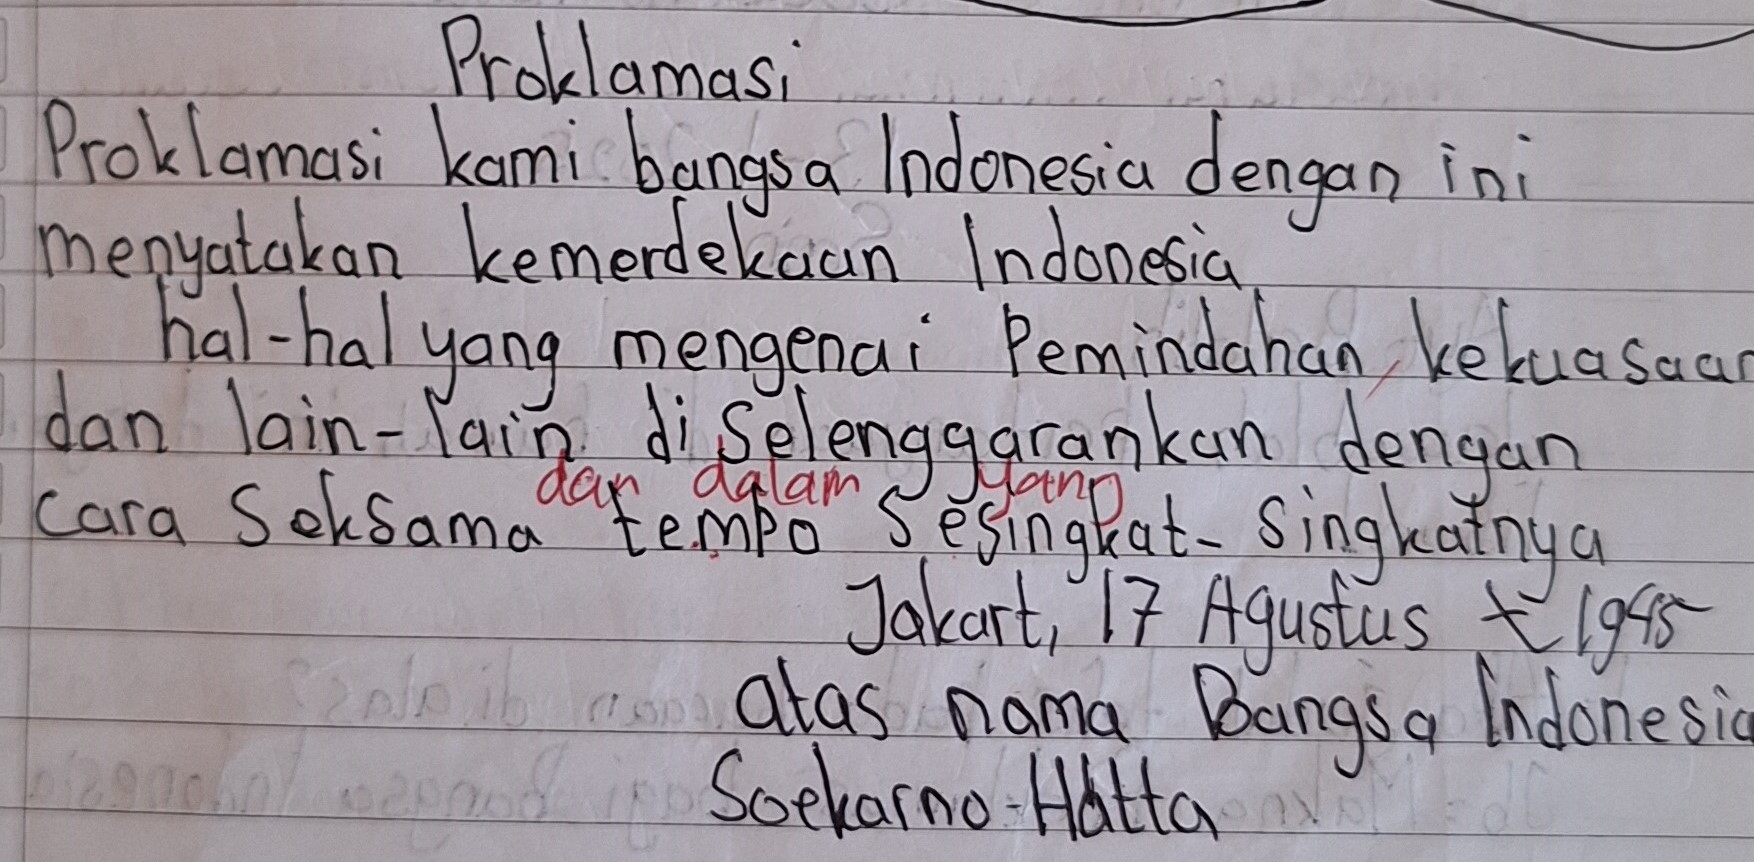 Proklamasi
Proklamasi kami bangsa Indonesia dengan ini
menyatakan kemerdekaan Indonesia
hal-hal yang mengenai Pemindahan, kekuasaan
dan lain-lain diselenggarankan dengan
dan dalam yang
cara Seksama tempo Sesingkat-singkatnya
Jakart, 17 Agustus 1945
atas nama Bangsa Indonesia
Soekarno-Hatta